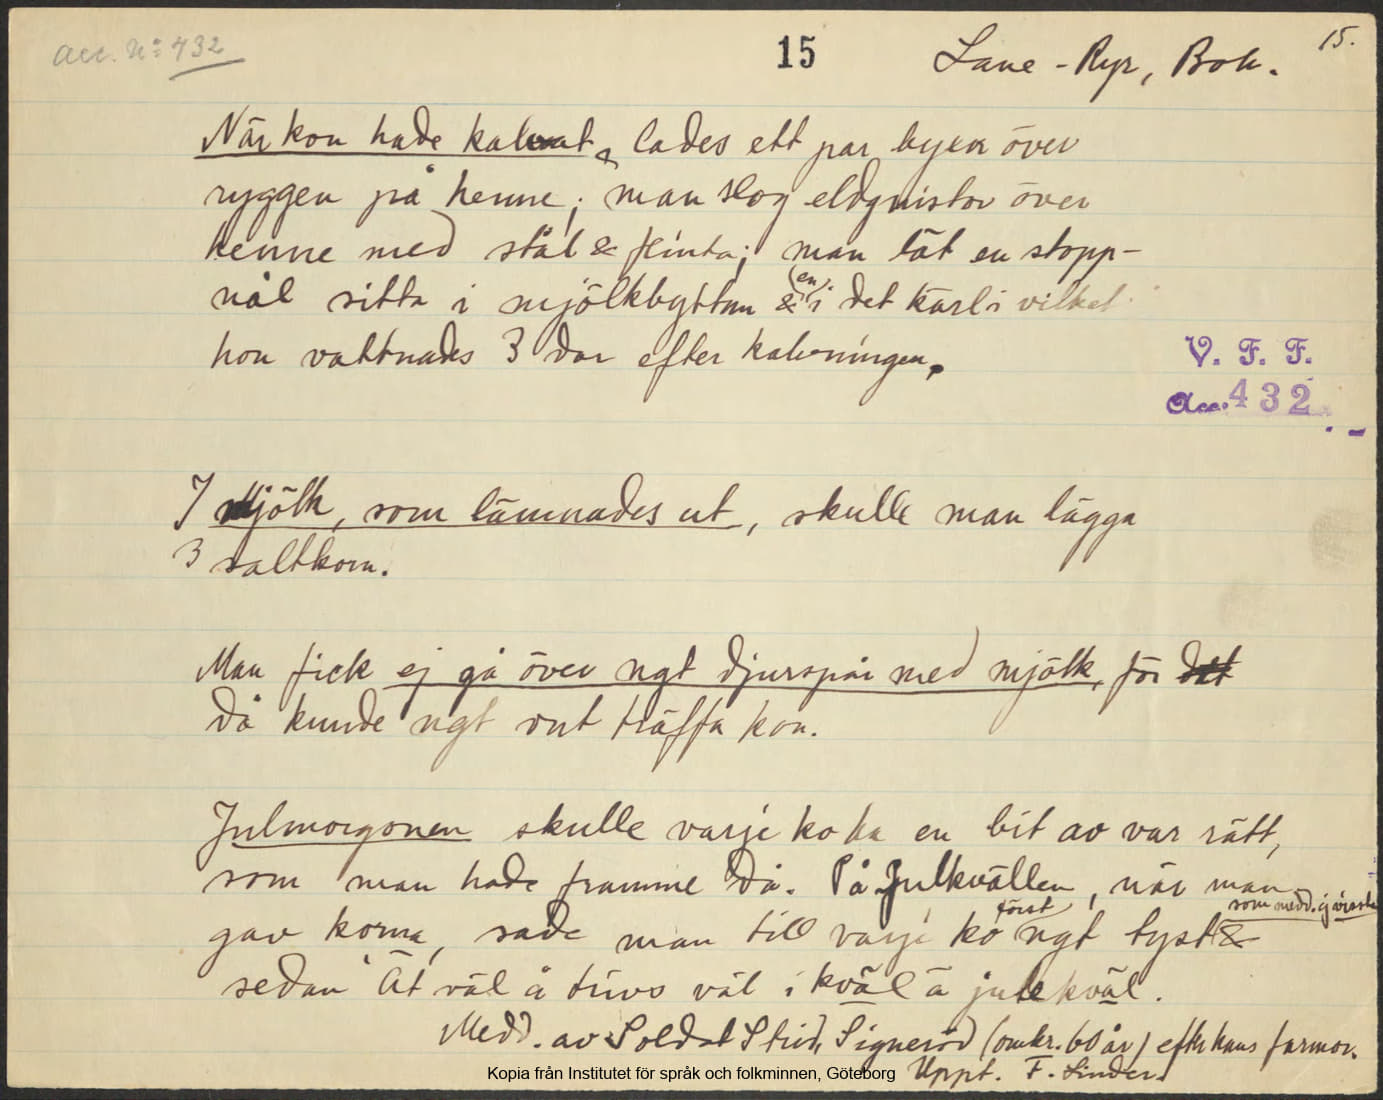 acc. No: 432
15
Lane-Ryr, Boh.
15.
När kon hade kalvat, lades ett par byxor över
ryggen på henne; man slog eldgnistor över
henne med stål & flinta; man lät en stopp-
nål sitta i mjölkbyttan & (en) i det kärl i vilket
hon vattnades 3 dar efter kalvningen.
V. F. F.
Acc. 432
I mjölk, som lämnades ut, skulle man lägga
3 saltkorn.
Man fick ej gå över ngt djurspår med mjölk, för det
då kunde ngt ont träffa kon.
Julmorgonen skulle varje ko ha en bit av var rätt,
som man hade framme då. På Julkvällen, när man
som medd. ej visste
gav korna, sade man till varje ko först ngt tyst &
sedan "Ät väl å trivs väl i kväl ä julekväl.
Medd. av Soldat Strid, Signeröd (omkr. 60 år) efter hans farmor.
Uppt. F. Linder.
Kopia från Institutet för språk och folkminnen, Göteborg